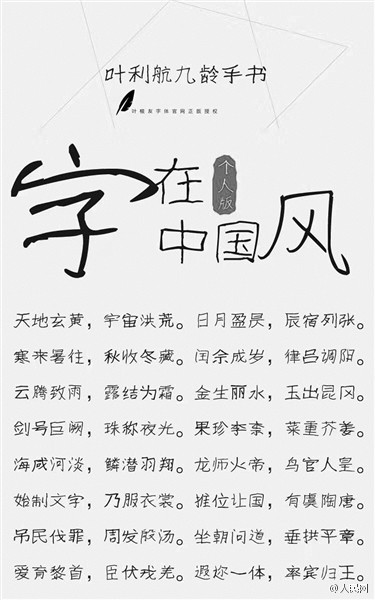 叶利航九龄手书
叶根友字体官网正版授权
字在
个人版
中国风
天地玄黄，宇宙洪荒。日月盈昃，辰宿列张。
寒来暑往，秋收冬藏。闰余成岁，律吕调阳。
云腾致雨，露结为霜。金生丽水，玉出昆冈。
剑号巨阙，珠称夜光。果珍李柰，菜重芥姜。
海咸河淡，鳞潜羽翔。龙师火帝，鸟官人皇。
始制文字，乃服衣裳。推位让国，有虞陶唐。
吊民伐罪，周发殷汤。坐朝问道，垂拱平章。
爱育黎首，臣伏戎羌。遐迩一体，率宾归王。
@人民网